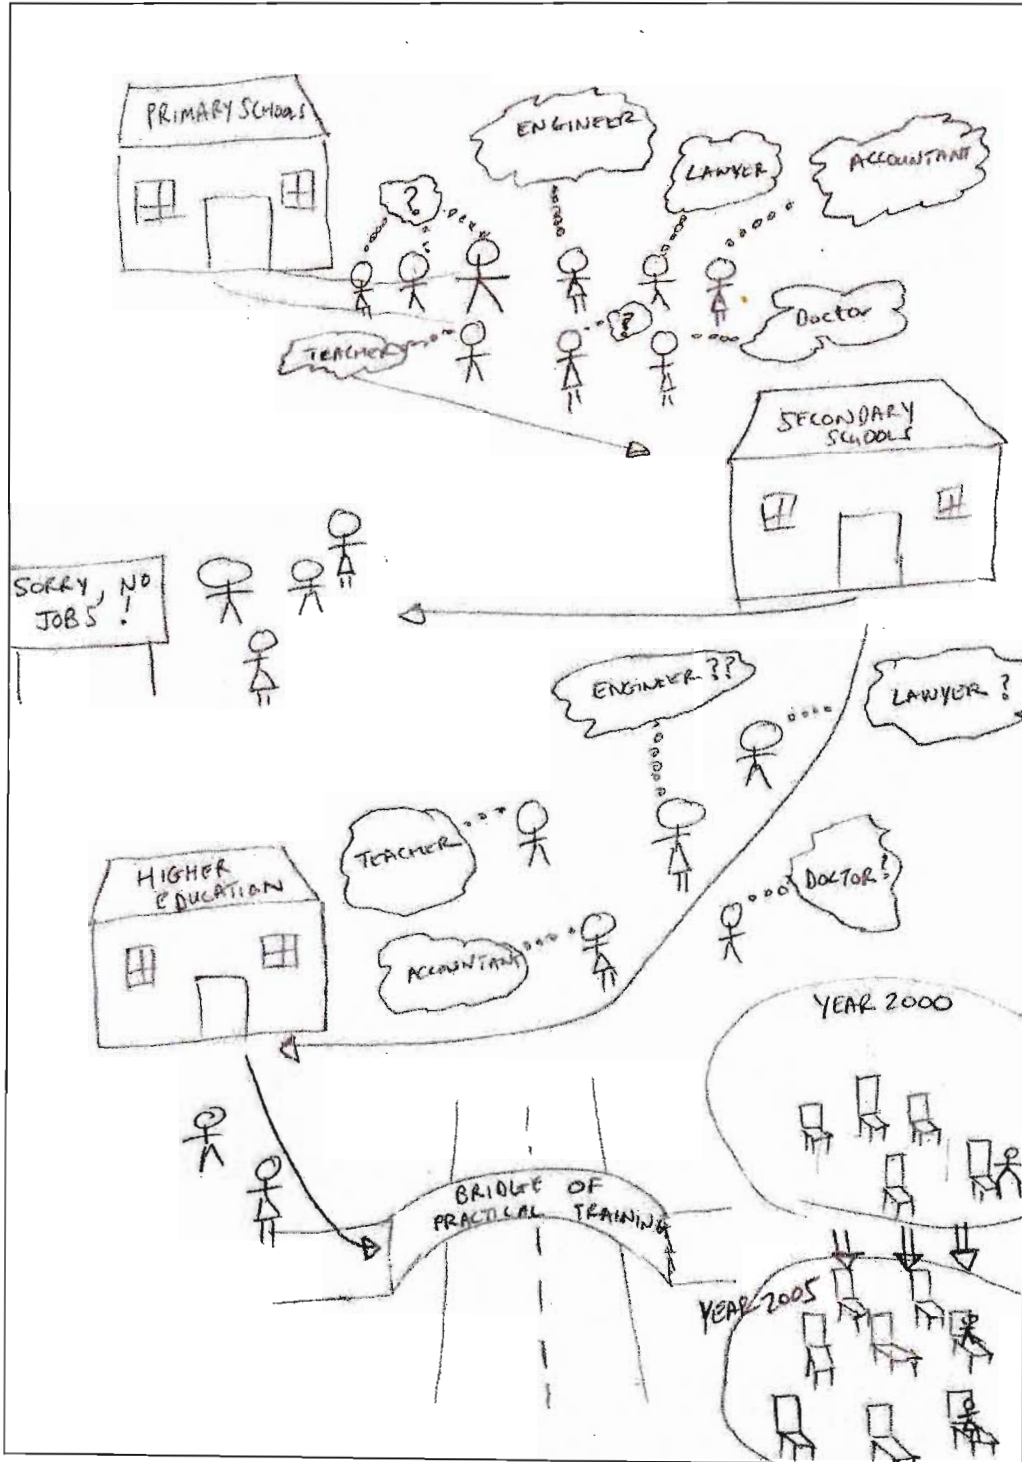 PRIMARY SCHOOLS
ENGINEER
LAWYER
ACCOUNTANT
?
?
Doctor
TEACHER
SECONDARY
SCHOOLS
SORRY, NO
JOBS !
ENGINEER ??
LAWYER ?
TEACHER
DOCTOR?
HIGHER
EDUCATION
ACCOUNTANT
YEAR 2000
BRIDGE OF
PRACTICAL TRAINING
YEAR 2005